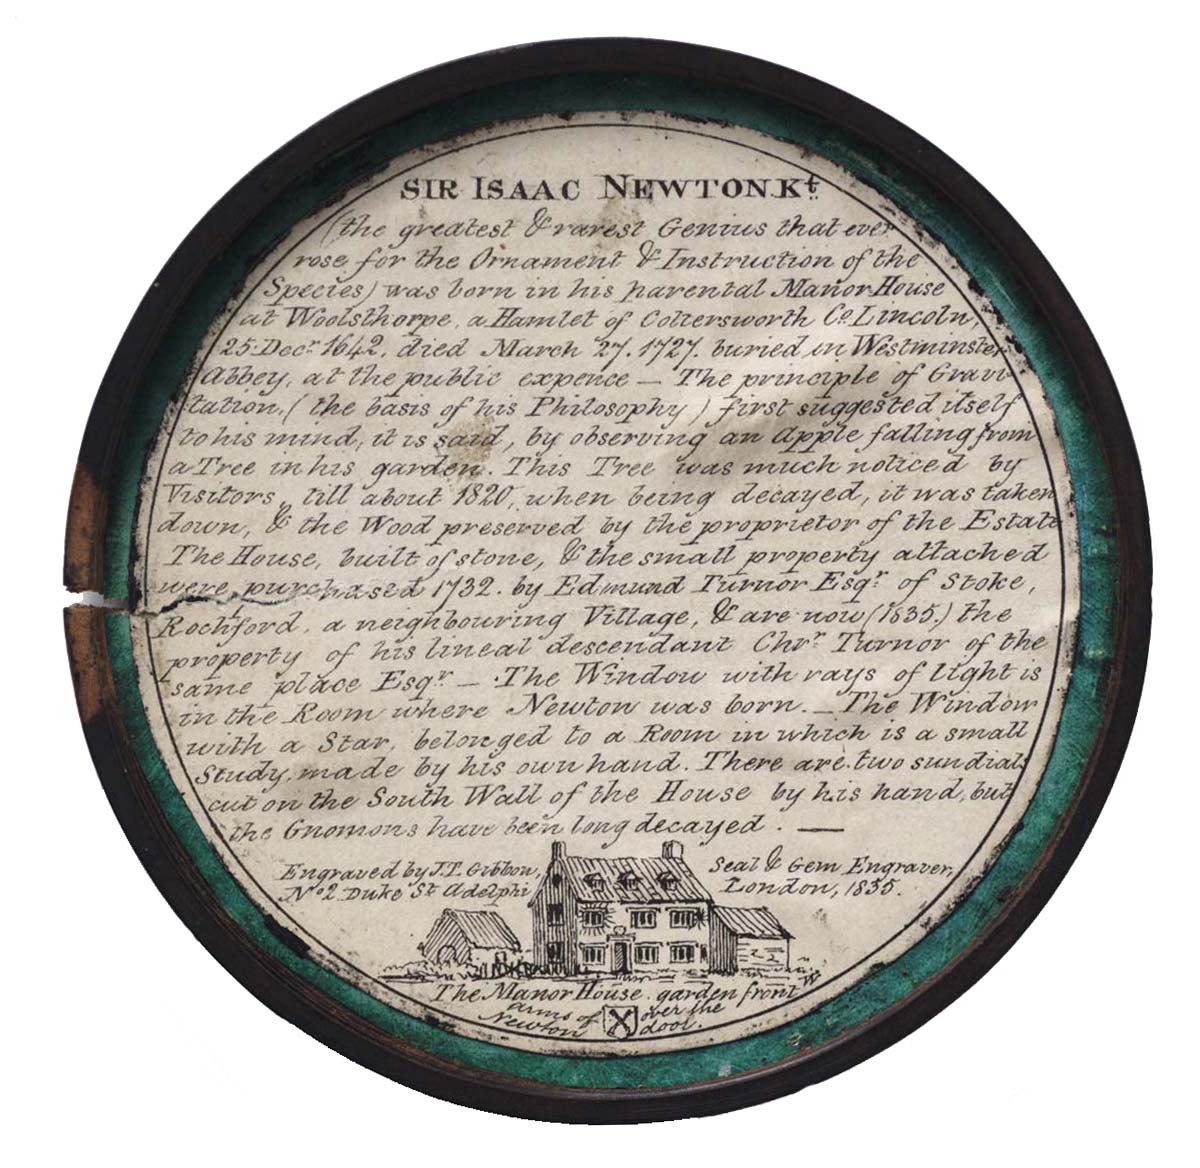 SIR ISAAC NEWTON K.t
(the greatest & rarest Genius that ever
rose for the Ornament & Instruction of the
Species) was born in his parental Manor House
at Woolsthorpe, a Hamlet of Coltersworth Co. Lincoln,
25 Decr. 1642, died March 27. 1727. buried in Westminster
Abbey, at the public expence — The principle of Gravi-
tation, (the basis of his Philosophy) first suggested itself
to his mind, it is said, by observing an Apple falling from
a Tree in his garden. This Tree was much noticed by
Visitors, till about 1820, when being decayed, it was taken
down, & the Wood preserved by the proprietor of the Estate
The House, built of stone, & the small property attached
were purchased 1732. by Edmund Turnor Esqr. of Stoke,
Rochford, a neighbouring Village, & are now (1835.) the
property of his lineal descendant Chrr. Turnor of the
same place Esqr. — The Window with rays of light is
in the Room where Newton was born. — The Window
with a Star, belonged to a Room in which is a small
Study, made by his own hand. There are two sundials
cut on the South Wall of the House by his hand, but
the Gnomons have been long decayed. —
Engraved by J.T. Gibbon, Seal & Gem Engraver,
No. 2. Duke St. Adelphi London, 1835.
The Manor House. garden front W
Arms of Newton over the door.